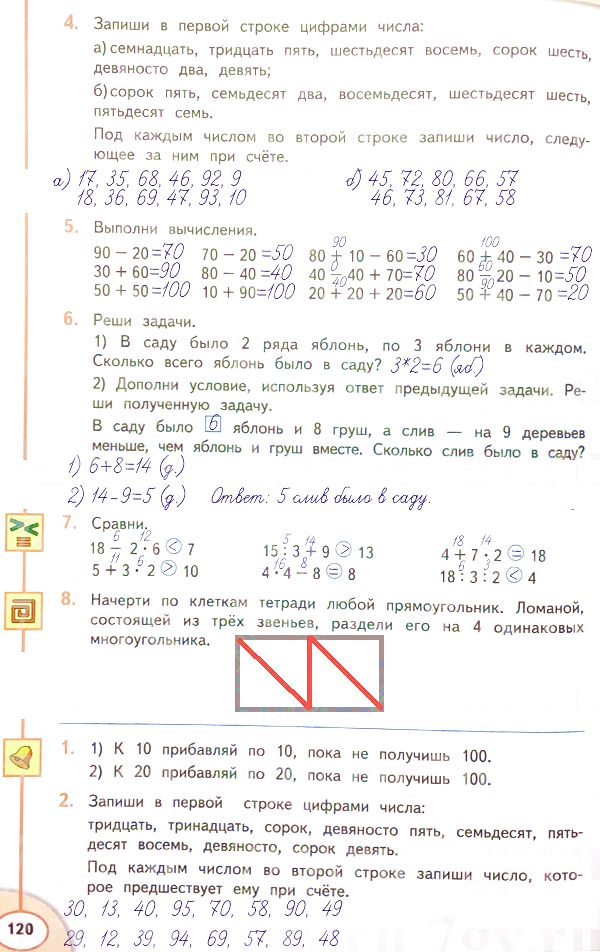 4. Запиши в первой строке цифрами числа:
а) семнадцать, тридцать пять, шестьдесят восемь, сорок шесть,
девяносто два, девять;
б) сорок пять, семьдесят два, восемьдесят, шестьдесят шесть,
пятьдесят семь.
Под каждым числом во второй строке запиши число, следу-
ющее за ним при счёте.
а) 17, 35, 68, 46, 92, 9 б) 45, 72, 80, 66, 57
18, 36, 69, 47, 93, 10 46, 73, 81, 67, 58
5. Выполни вычисления.
90 100
90 – 20 =70 70 – 20 =50 80 + 10 – 60 =30 60 + 40 – 30 =70
0 60
30 + 60 =90 80 – 40 =40 40 – 40 + 70 =70 80 – 20 – 10 =50
40 90
50 + 50 =100 10 + 90 =100 20 + 20 + 20 =60 50 + 40 – 70 =20
6. Реши задачи.
1) В саду было 2 ряда яблонь, по 3 яблони в каждом.
Сколько всего яблонь было в саду? 3*2=6 (яб.)
2) Дополни условие, используя ответ предыдущей задачи. Ре-
ши полученную задачу.
В саду было 6 яблонь и 8 груш, а слив — на 9 деревьев
меньше, чем яблонь и груш вместе. Сколько слив было в саду?
1) 6+8=14 (д.)
2) 14-9=5 (д.) Ответ: 5 слив было в саду.
7. Сравни.
6 12 5 14 18 14
18 – 2 · 6 < 7 15 : 3 + 9 > 13 4 + 7 · 2 = 18
11 6 16 8 6 3
5 + 3 · 2 > 10 4 · 4 – 8 = 8 18 : 3 : 2 < 4
8. Начерти по клеткам тетради любой прямоугольник. Ломаной,
состоящей из трёх звеньев, раздели его на 4 одинаковых
многоугольника.
1. 1) К 10 прибавляй по 10, пока не получишь 100.
2) К 20 прибавляй по 20, пока не получишь 100.
2. Запиши в первой строке цифрами числа:
тридцать, тринадцать, сорок, девяносто пять, семьдесят, пять-
десят восемь, девяносто, сорок девять.
Под каждым числом во второй строке запиши число, кото-
рое предшествует ему при счёте.
30, 13, 40, 95, 70, 58, 90, 49
120
29, 12, 39, 94, 69, 57, 89, 48